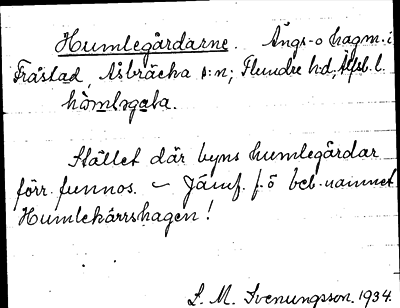 Humlegårdarne. Ängs- o hagm. i
Fråstad, Åsbräcka s:n; Flundre hd; Älfsb. l.
hòmlәga̱ḷa.
Stället där byns humlegårdar
förr funnos. – Jämf. f. ö beb.-namnet
Humlekärrshagen!
L. M. Svenungsson. 1934.